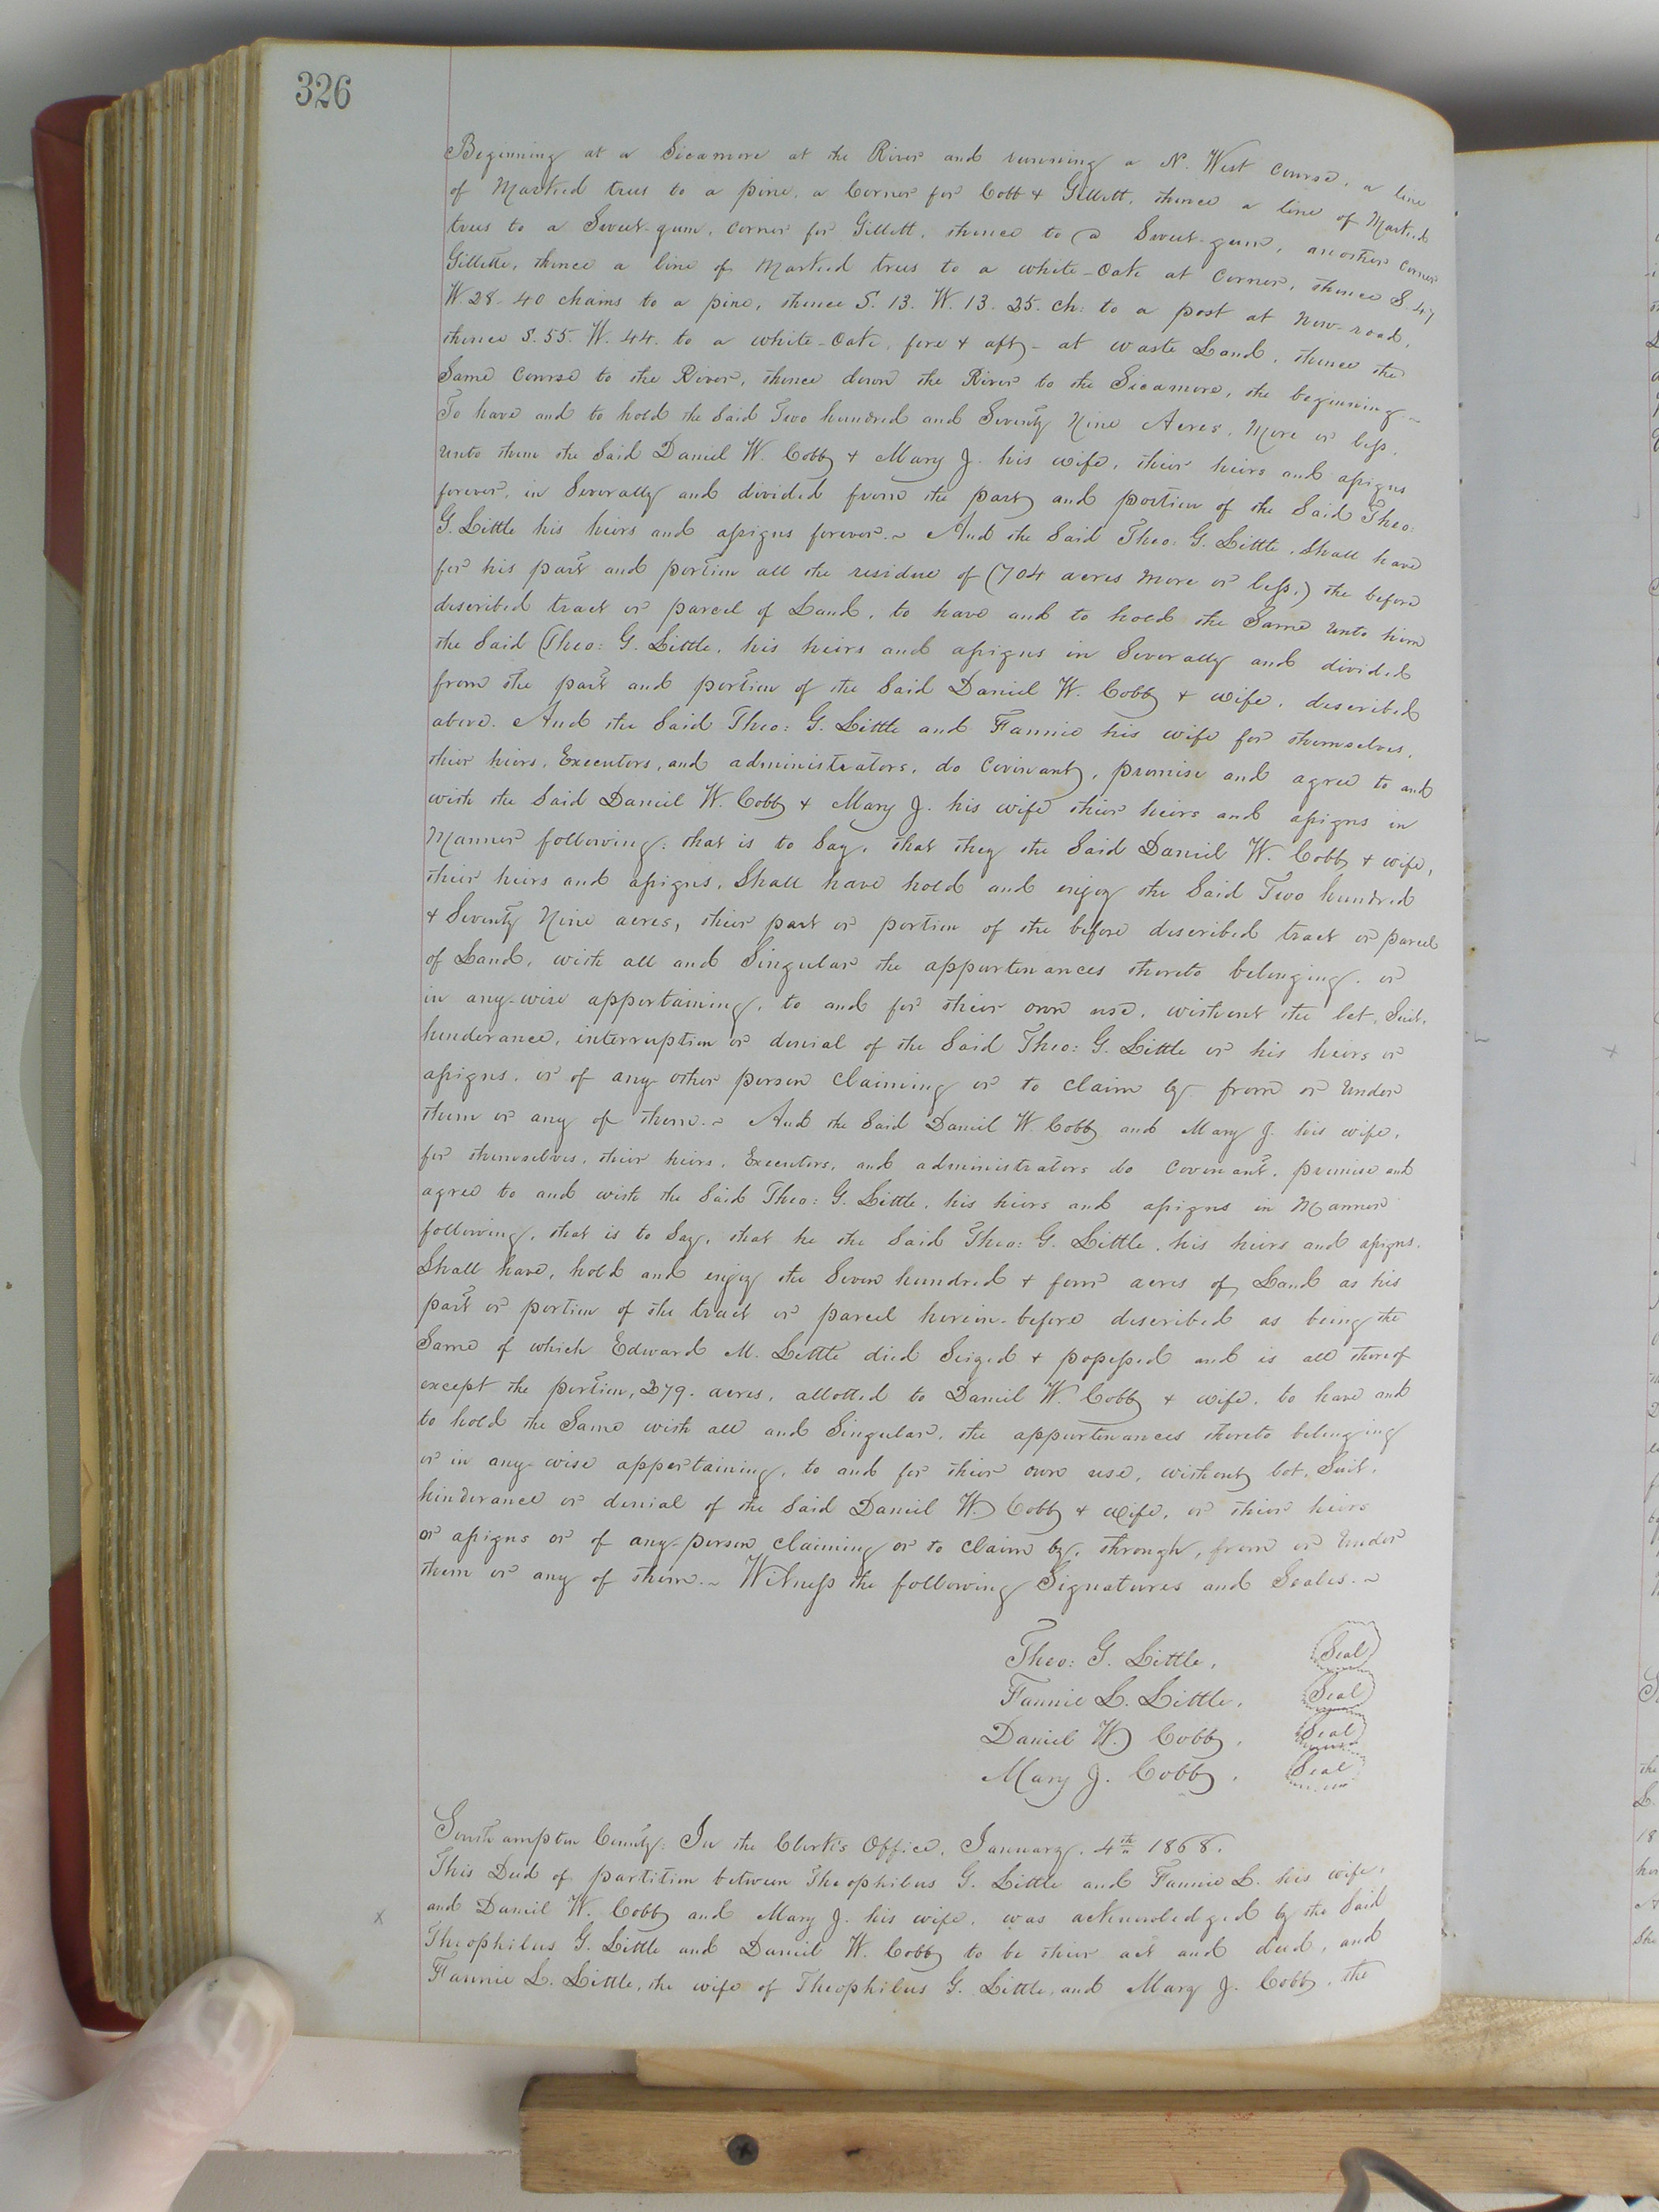 326
Beginning at a Sicamore at the River and running a N. West course, a line
of Marked trees to a pine, a Corner for Cobb & Gillett, thence a line of Marked
trees to a Sweet-gum, corner for Gillett, thence to a Sweet-gum, another corner
Gillette, thence a line of Marked trees to a white-Oak at Corner, thence S. 47
W. 28-40 chains to a pine, thence S. 13. W. 13. 25. ch: to a post at New-road,
thence S. 55. W. 44. to a white-Oak, fore & aft, - at waste Land, thence the
Same Course to the River, thence down the River to the Sicamore, the beginning -
To have and to hold the Said Two hundred and Seventy Nine Acres, More or less,
unto them the Said Daniel W. Cobb & Mary J. his wife, their heirs and assigns
forever, in Severalty and divided from the part and portion of the Said Theo:
G. Little his heirs and assigns forever. ~ And the Said Theo: G. Little, Shall have
for his part and portion all the residue of (704 acres More or less,) the before
described tract or parcel of Land, to have and to hold the Same unto him
the Said Theo: G. Little, his heirs and assigns in Severalty and divided
from the part and portion of the Said Daniel W. Cobb & wife, described
above. And the Said Theo: G. Little and Fannie his wife for themselves,
their heirs, Executors, and administrators, do Covinant, promise and agree to and
with the Said Daniel W. Cobb & Mary J. his wife their heirs and assigns in
Manner following: that is to Say, that they the Said Daniel W. Cobb & wife,
their heirs and assigns, Shall have hold and enjoy the Said Two hundred
& Seventy Nine acres, their part or portion of the before described tract or parcel
of Land, with all and Singular the appurtenances thereto belonging, or
in any-wise appertaining, to and for their own use, without the let, Suit,
hinderance, interruption or denial of the Said Theo: G. Little or his heirs or
assigns, or of any other person claiming or to claim by from or under
them or any of them. ~ And the Said Daniel W. Cobb and Mary J. his wife,
for themselves, their heirs, Executors, and administrators do Covenant, promise and
agree to and with the Said Theo: G. Little, his heirs and assigns in Manner
following, that is to Say, that he the Said Theo: G. Little, his heirs and assigns,
Shall have, hold and enjoy the Seven hundred & four acres of Land as his
part or portion of the tract or parcel herein-before described as being the
Same of which Edward M. Little died Seized & possessed and is all thereof
except the portion, 279. acres, allotted to Daniel W. Cobb & wife, to have and
to hold the Same with all and Singular, the appurtenances thereto belonging
or in any-wise appertaining, to and for their own use, without let, Suit,
hinderance or denial of the Said Daniel W. Cobb & wife, or their heirs
or assigns or of any-person claiming or to claim by, through, from or under
them or any of them. ~ Witness the following Signatures and Seales. ~
Theo: G. Little, Seal
Fannie L. Little, Seal
Daniel W. Cobb, Seal
Mary J. Cobb, Seal
Southampton County: In the Clerk's Office, January, 4th 1868.
This Deed of partition between Theophilus G. Little and Fannie L. his wife,
and Daniel W. Cobb and Mary J. his wife, was acknowledged by the Said
x
Theophilus G. Little and Daniel W. Cobb to be their act and deed, and
Fannie L. Little, the wife of Theophilus G. Little, and Mary J. Cobb, the